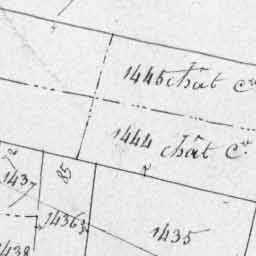 1445 chât cᵉ
1444 chât cᵉ
2
1437
85
1436
1435
1438